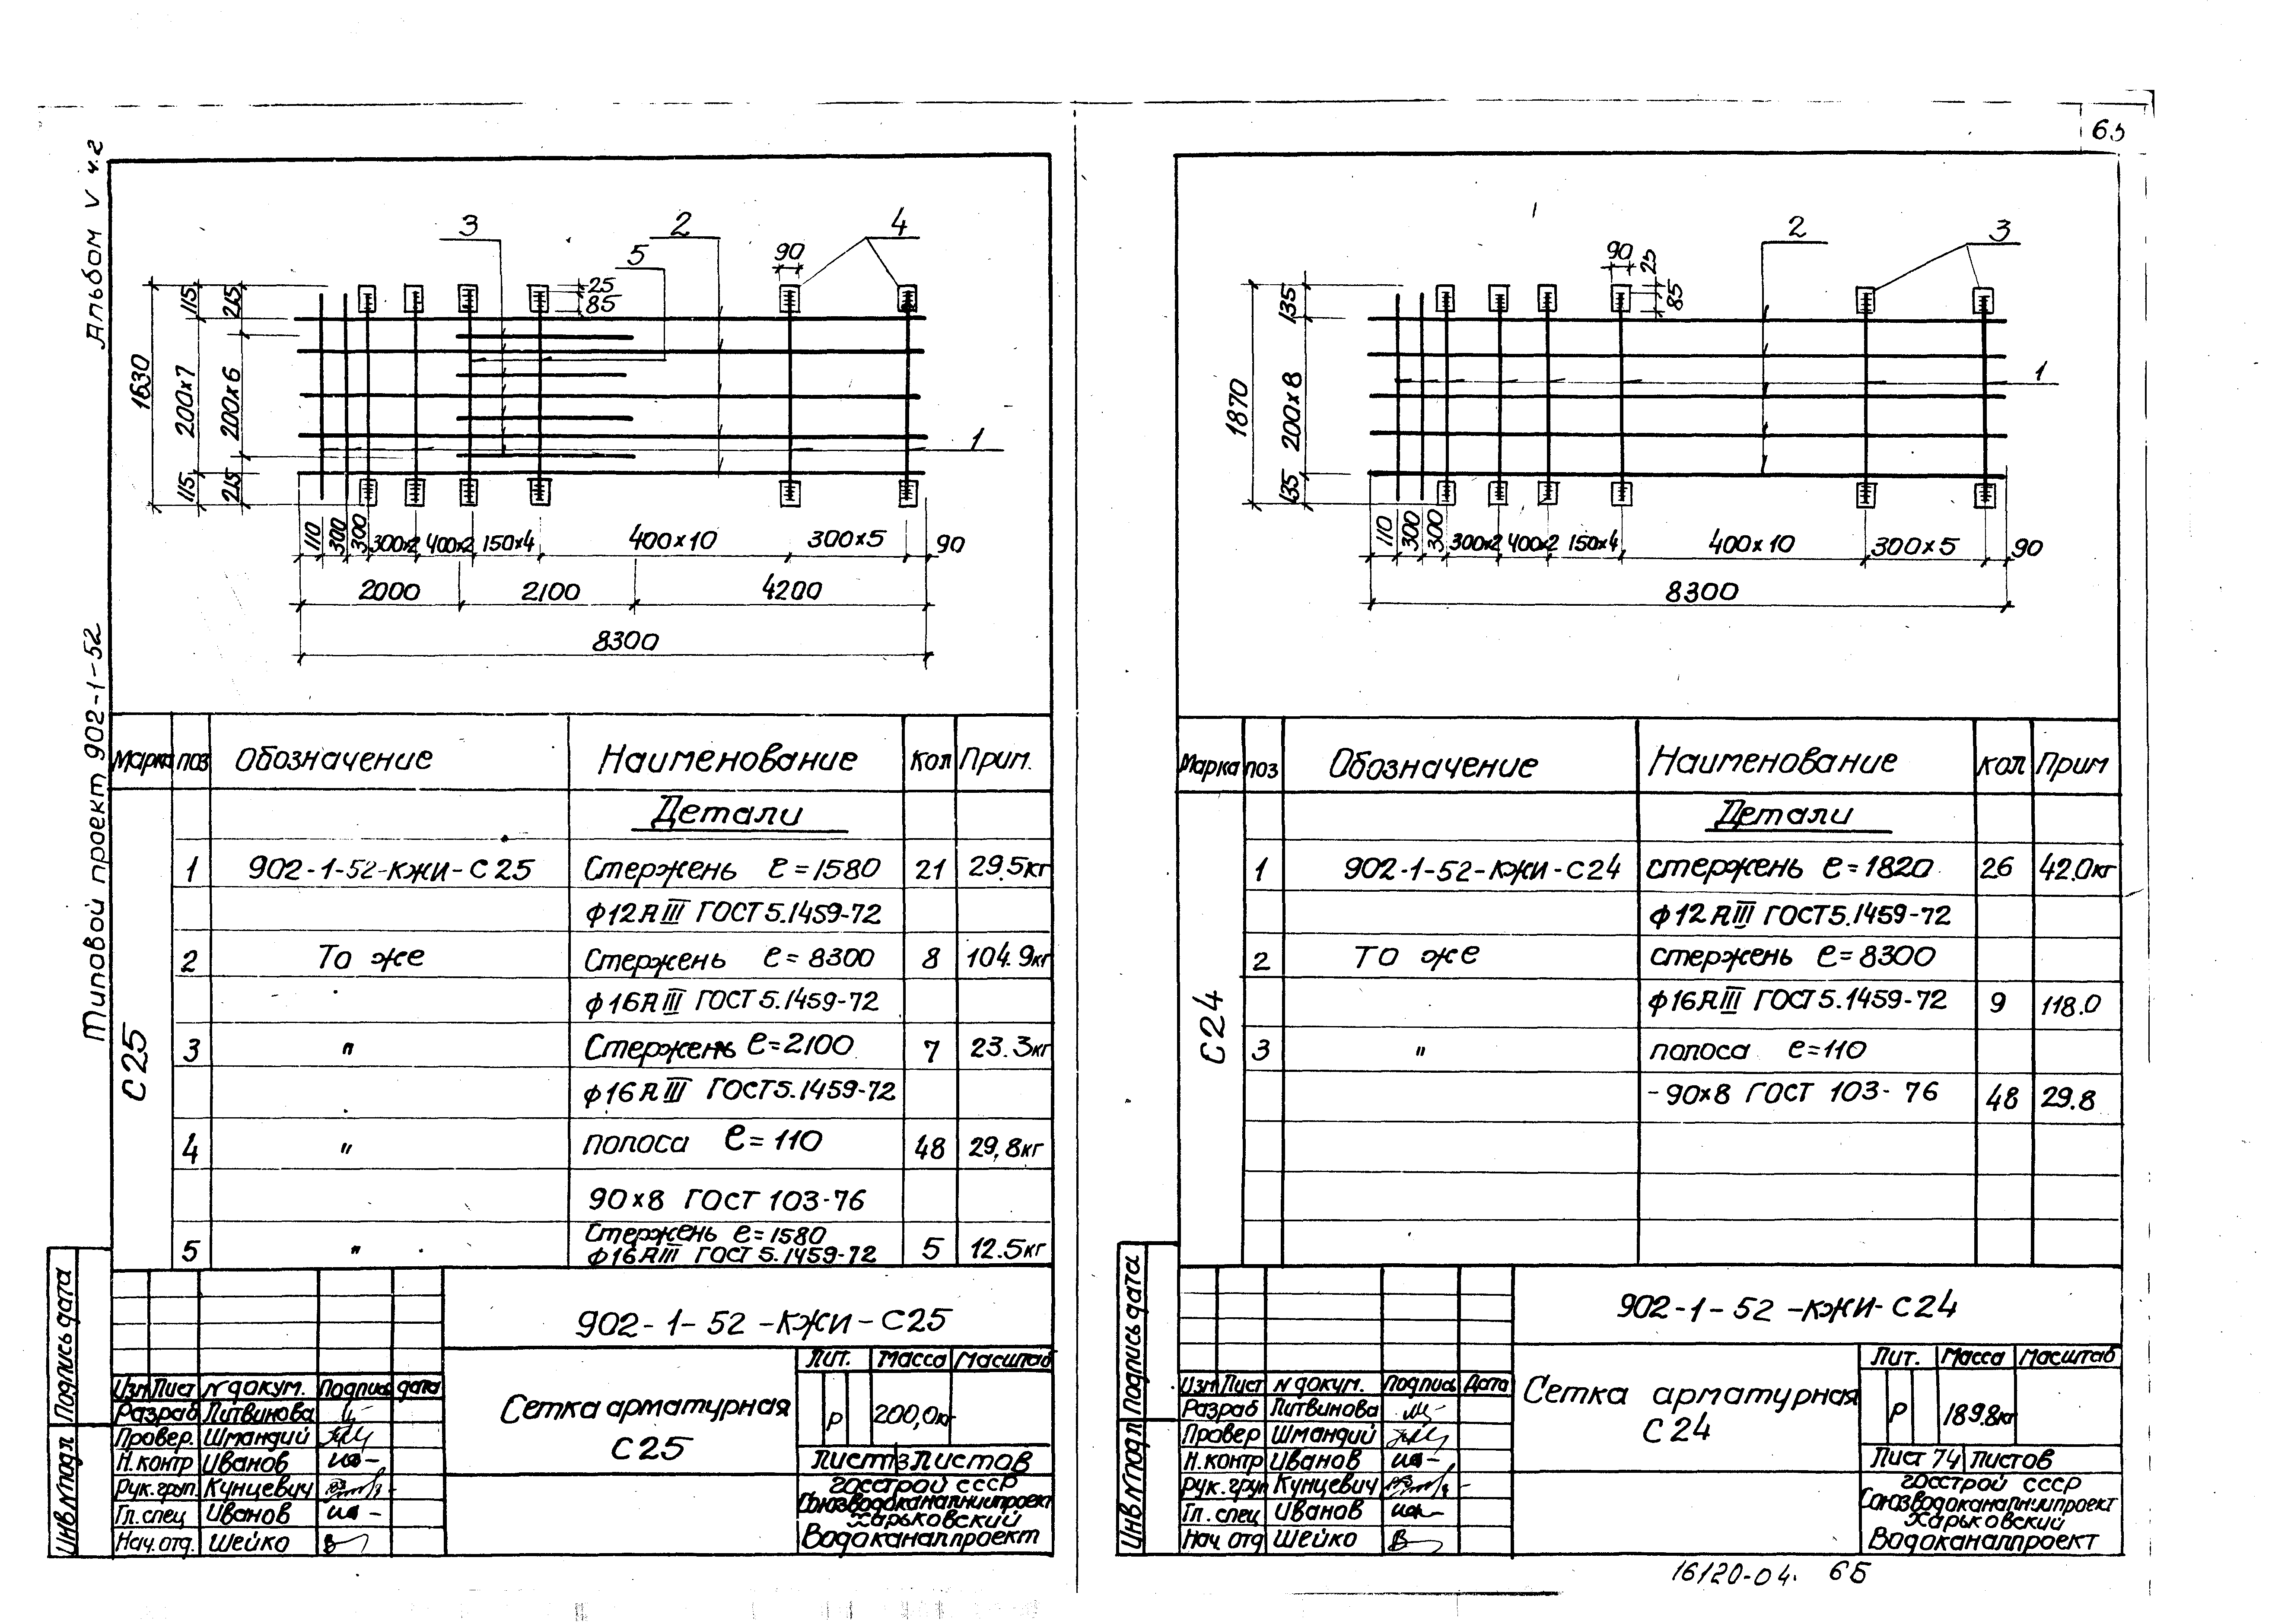 Альбом V ч.2
Типовой проект 902-1-52
3
2
4
5
90
25
85
1
1630
115
200х7
115
215
200х6
215
110
300
300
300х2
400х2
150х4
400х10
300х5
90
2000
2100
4200
8300
Марка поз Обозначение Наименование Кол Прим.
С25
Детали
1 902-1-52-КЖИ-С25 Стержень ℓ=1580 21 29.5кг
ф12АIII ГОСТ 5.1459-72
2 То же Стержень ℓ=8300 8 104.9кг
ф16АIII ГОСТ 5.1459-72
3 " Стержень ℓ=2100 7 23.3кг
ф16АIII ГОСТ 5.1459-72
4 " полоса ℓ=110 48 29,8кг
90х8 ГОСТ 103-76
Стержень ℓ=1580
5 " ф16АIII ГОСТ 5.1459-72 5 12.5кг
902-1-52-КЖИ-С25
Лит. Масса Масштаб
Изм Лист N докум. Подпись дата
Разраб Литвинова
Провер. Шмандий
Н.контр Иванов
Рук.груп. Кунцевич
Гл.спец Иванов
Нач.отд. Шейко
Сетка арматурная
С25
Р 200,0кг
Лист Листов
Госстрой СССР
Союзводоканалниипроект
Харьковский
Водоканалпроект
Инв N подл Подпись дата
63
90
25
85
2
3
1
1870
135
200х8
135
110
300
300
300х2
400х2
150х4
400х10
300х5
90
8300
Марка поз Обозначение Наименование Кол Прим
С24
Детали
1 902-1-52-КЖИ-С24 стержень ℓ=1820 26 42.0кг
ф12АIII ГОСТ 5.1459-72
2 То же стержень ℓ=8300
ф16АIII ГОСТ 5.1459-72 9 118.0
3 " полоса ℓ=110
-90х8 ГОСТ 103-76 48 29.8
902-1-52-КЖИ-С24
Лит. Масса Масштаб
Изм Лист N докум. Подпись Дата
Разраб Литвинова
Провер Шмандий
Н.контр Иванов
Рук.груп Кунцевич
Гл.спец Иванов
Нач отд Шейко
Сетка арматурная
С24
Р 189.8кг
Лист 74 Листов
Госстрой СССР
Союзводоканалниипроект
Харьковский
Водоканалпроект
Инв N подл Подпись дата
16120-04. 65